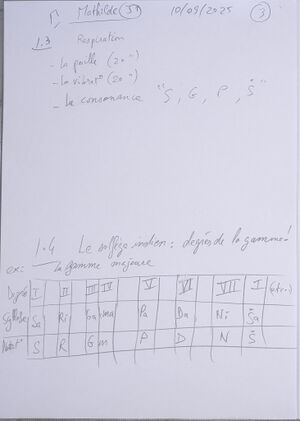 Mathilde 10/09/2025 3
1.3 Respiration
- la paille (20 ")
- la vibrat° (20 ")
- la consonance "S, G, P, Ṡ"
1.4 Le solfège indien : degrés de la gamme!
ex: la gamme majeure
Degrés I II III IV V VI VII I (octave)
Syllabe Sa Ri Ga ma Pa Da Ni Ṡa
Notat° S R G m P D N Ṡ